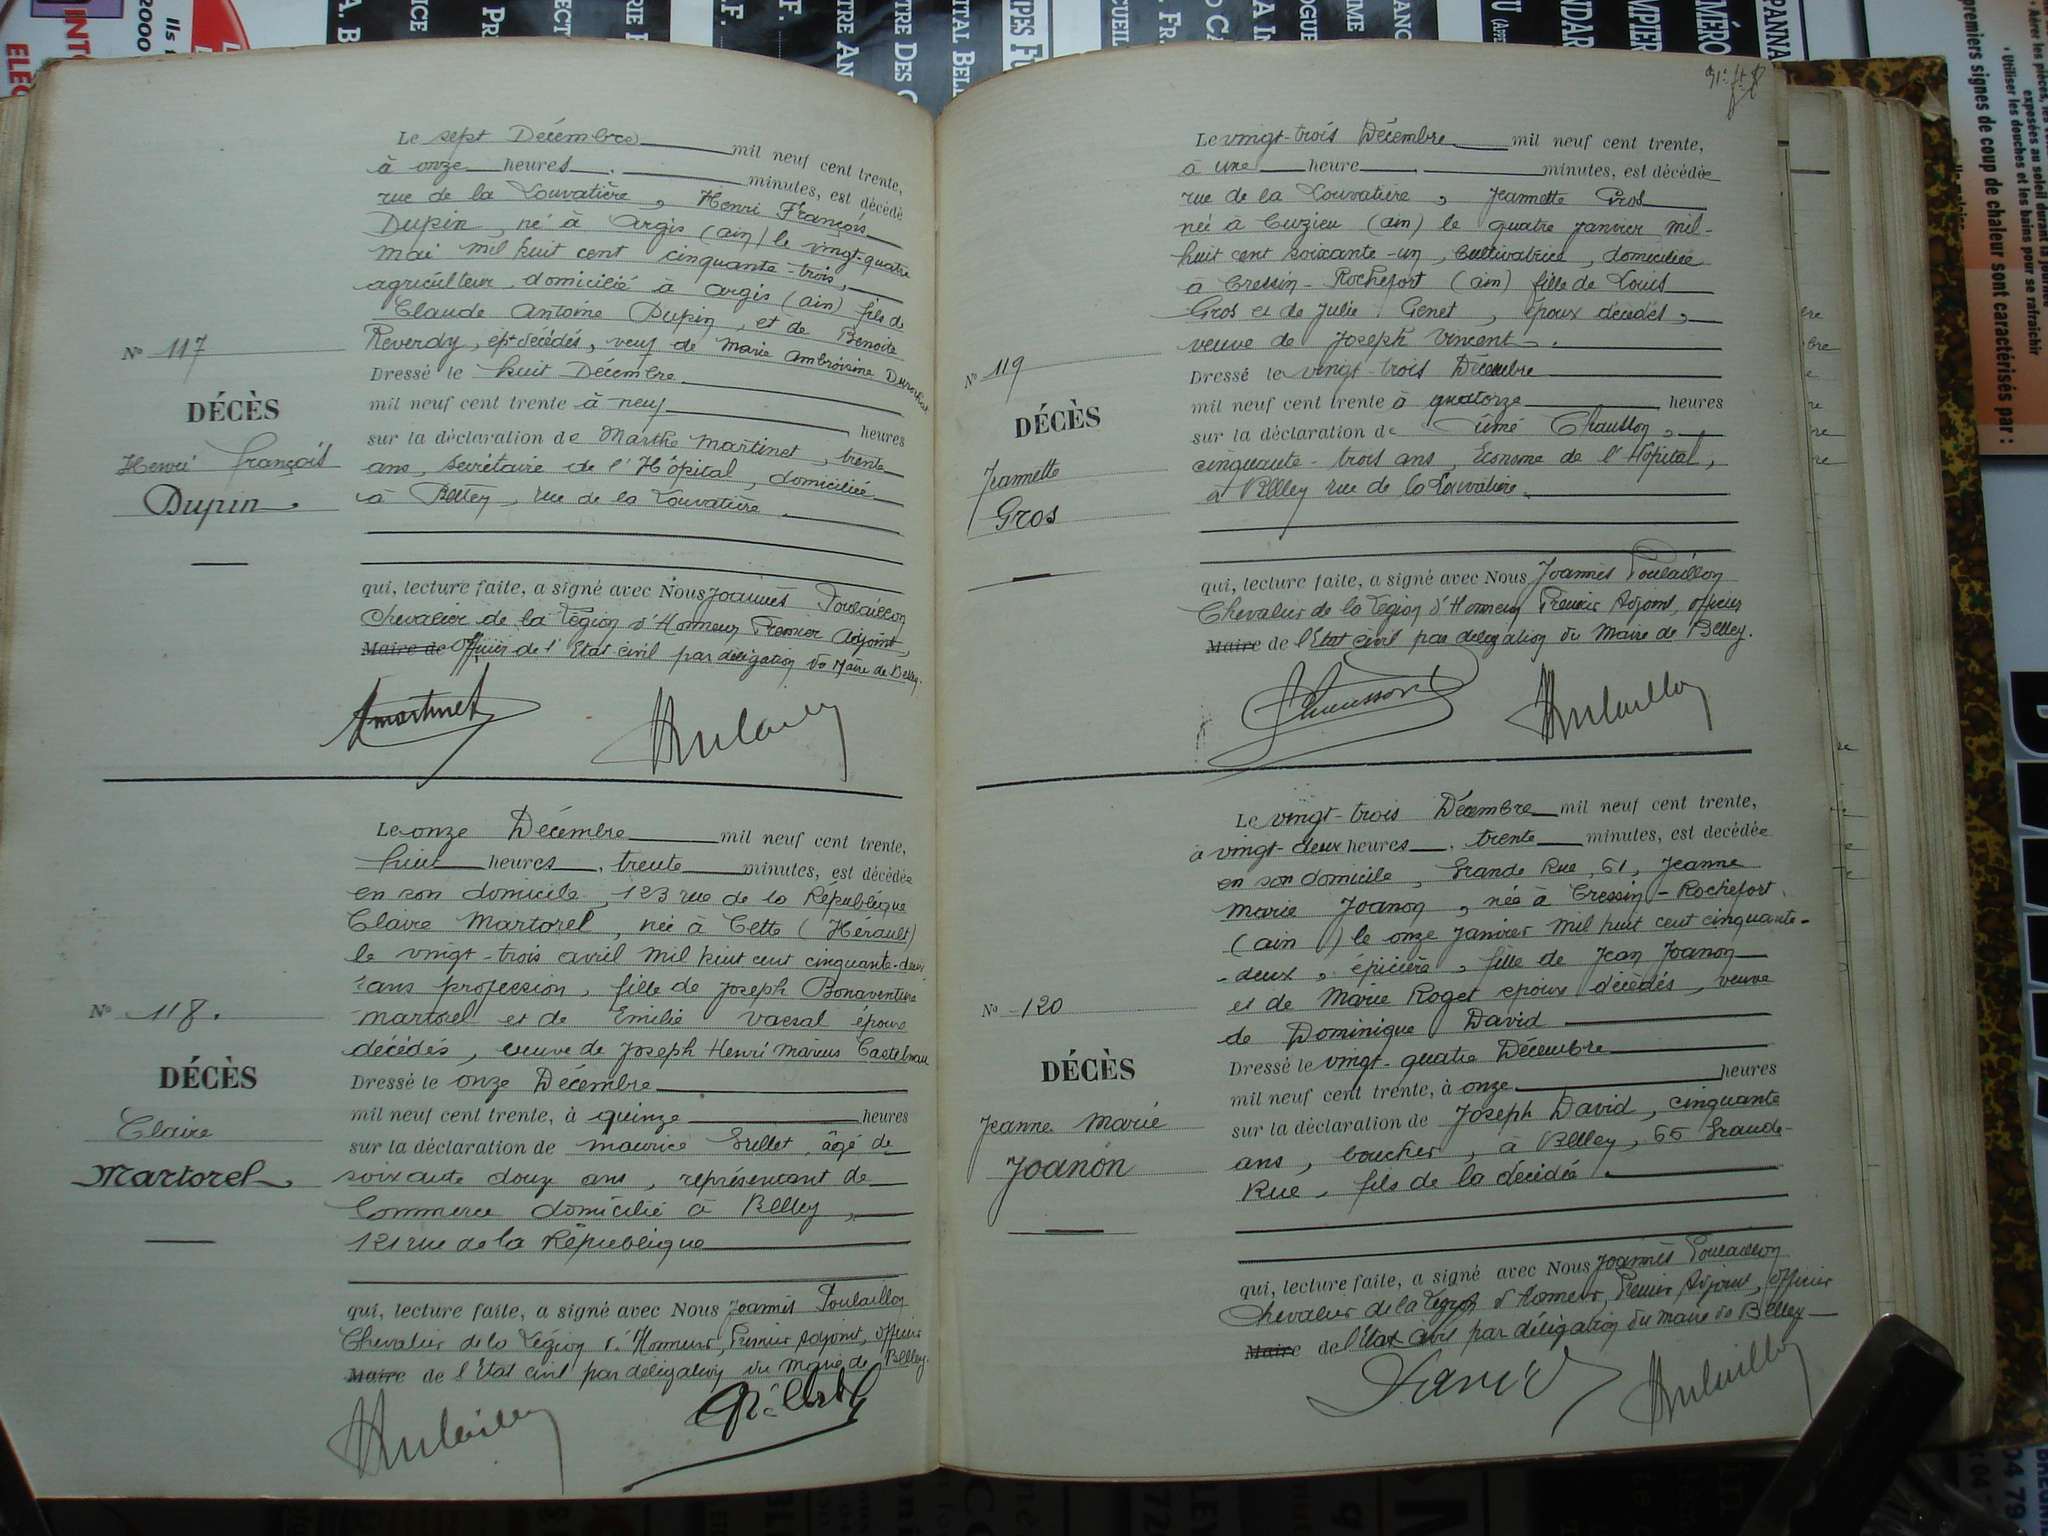 Le sept Décembre mil neuf cent trente,
à onze heures minutes, est décédé
rue de la Louvatière, Henri François
Dupin, né à Argis (ain) le vingt-quatre
mai mil huit cent cinquante-trois,
agriculteur domicilié à Argis (ain) fils de
Claude Antoine Dupin, et de Benoite
Reverdy, ép+ décédés, veuf de Marie Ambroisine
Dressé le huit Décembre
mil neuf cent trente à neuf heures
sur la déclaration de Marthe Martinet, trente
ans, secrétaire de l'Hôpital, domiciliée
à Belley, rue de la Louvatière.
qui, lecture faite, a signé avec Nous Joannès Poulaillon
Chevalier de la Légion d'Honneur Premier Adjoint,
Maire de Officier de l'Etat civil par délégation du Maire de Belley.
Martinet
Poulaillon
N° 117
DÉCÈS
Henri François
Dupin.
Le onze Décembre mil neuf cent trente,
huit heures, trente minutes, est décédée
en son domicile, 123 rue de la République
Claire Martorel, née à Cette (Hérault)
le vingt-trois avril mil huit cent cinquante-deux
sans profession, fille de Joseph Bonaventure
Martorel et de Emilie époux
décédés, veuve de Joseph Henri Marius Castelnau
Dressé le onze Décembre
mil neuf cent trente, à quinze heures
sur la déclaration de Maurice Grillet, âgé de
soixante douze ans, représentant de
Commerce domicilié à Belley,
121 rue de la République
qui, lecture faite, a signé avec Nous Joannès Poulaillon
Chevalier de la Légion d'Honneur, Premier Adjoint, officier
Maire de l'Etat civil par délégation du Maire de Belley.
Poulaillon
N° 118.
DÉCÈS
Claire
Martorel
Le vingt-trois Décembre mil neuf cent trente,
à une heure minutes, est décédée
rue de la Louvatière, Jeannette Gros
née à Cuzieu (ain) le quatre janvier mil-
huit cent soixante-un, Cultivatrice, domiciliée
à Cressin-Rochefort (ain) fille de Louis
Gros et de Julie Genet, époux décédés,
veuve de Joseph Vincent.
Dressé le vingt-trois Décembre
mil neuf cent trente à quatorze heures
sur la déclaration de Aimé Chausson,
cinquante-trois ans, Econome de l'Hôpital,
à Belley rue de la Louvatière.
qui, lecture faite, a signé avec Nous Joannès Poulaillon
Chevalier de la Légion d'Honneur Premier Adjoint, officier
Maire de l'Etat civil par délégation du Maire de Belley.
Chausson
Poulaillon
N° 119
DÉCÈS
Jeannette
Gros
Le vingt-trois Décembre mil neuf cent trente,
à vingt-deux heures, trente minutes, est décédée
en son domicile, Grande Rue, 61, Jeanne
Marie Joanon, née à Cressin-Rochefort
(ain) le onze Janvier mil huit cent cinquante-
-deux, épicière, fille de Jean Joanon
et de Marie Roget époux décédés, veuve
de Dominique David
Dressé le vingt-quatre Décembre
mil neuf cent trente, à onze heures
sur la déclaration de Joseph David, cinquante
ans, boucher, à Belley, 65 Grande-
Rue, fils de la décédée.
qui, lecture faite, a signé avec Nous Joannès Poulaillon
Chevalier de la Légion d'Honneur, Premier Adjoint, Officier
Maire de l'Etat civil par délégation du Maire de Belley
David
Poulaillon
N° 120
DÉCÈS
Jeanne Marie
Joanon
premiers signes de coup de chaleur sont caractérisés par :
• Utiliser les douches et les bains pour se rafraîchir